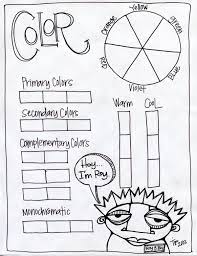 COLOR
Yellow
Orange
Green
Red
Blue
Violet
Primary Colors
Secondary Colors
Warm Cool
Complementary Colors
Hey...
I'm Ray
Monochromatic